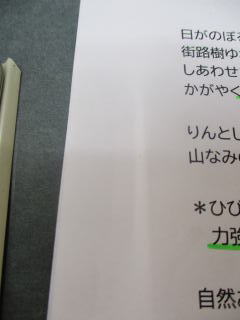 日がのぼる
街路樹ゆ
しあわせ
かがやく
りんとし
山なみの
＊ひび
力強
自然あ